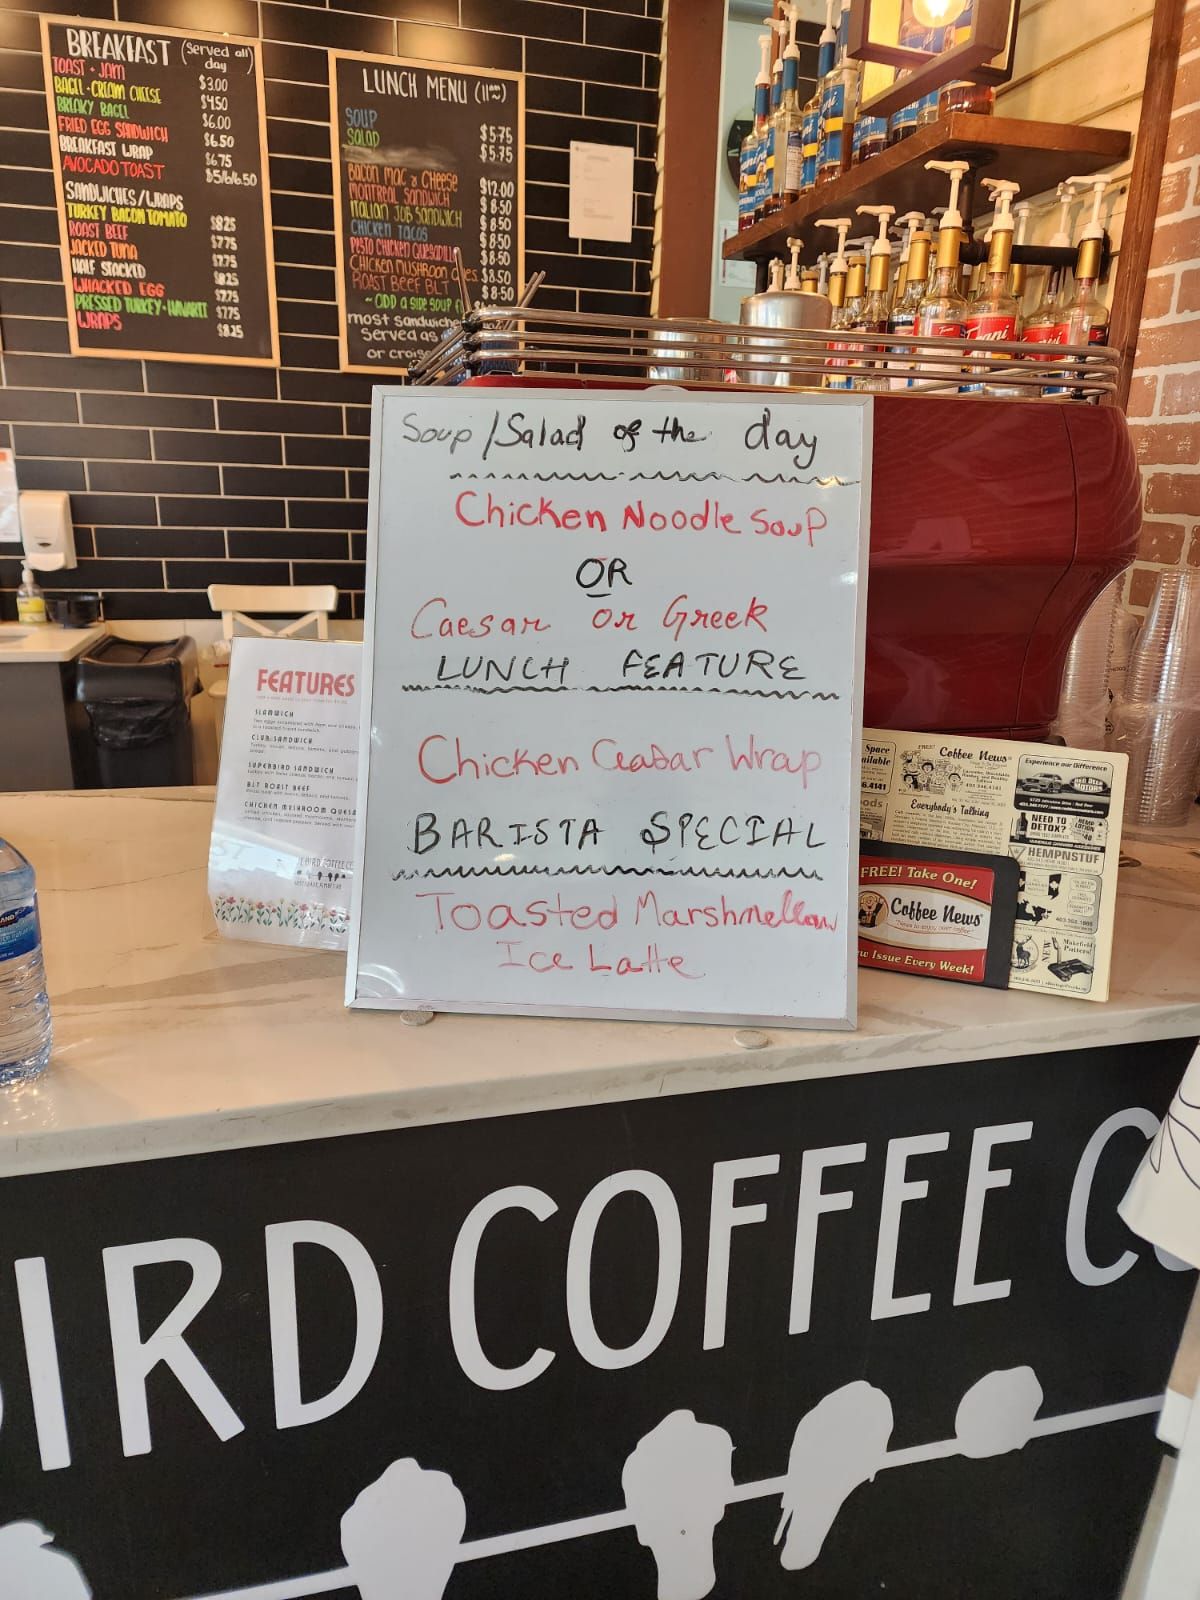 BREAKFAST (Served all day
TOAST + JAM $3.00
BAGEL + CREAM CHEESE $4.50
BREAKY BAGEL $6.00
FRIED EGG SANDWICH $6.50
BREAKFAST WRAP $6.75
AVOCADO TOAST $5/6/6.50
SANDWICHES/WRAPS
TURKEY BACON TOMATO $8.25
ROAST BEEF $7.75
JACKED TUNA $7.75
HALF STACKED $8.25
WHACKED EGG $7.75
PRESSED TURKEY + HAVARTI $7.75
WRAPS $8.25
LUNCH MENU (11am)
SOUP $5.75
SALAD $5.75
BACON MAC & CHEESE $12.00
MONTREAL SANDWICH $8.50
ITALIAN JOB SANDWICH $8.50
CHICKEN TACOS $8.50
PESTO CHICKEN QUESADILL $8.50
CHICKEN MUSHROOM $8.50
ROAST BEEF BLT $8.50
~ ADD A SIDE SOUP
most sandwiche
Served as
or crois
Soup/Salad of the day
Chicken Noodle Soup
OR
Caesar or Greek
LUNCH FEATURE
Chicken Ceasar Wrap
BARISTA SPECIAL
Toasted Marshmellow
Ice Latte
FEATURES
SLAMWICH
CLUB SANDWICH
SUPERBIRD SANDWICH
BLT ROAST BEEF
CHICKEN MUSHROOM QUESA
Torani
Space
ailable
6.4141
FREE!
Coffee News
Everybody's Talking
Experience our Difference
RED DEER MOTORS
NEED TO DETOX?
HEMP LOTION
HEMPNSTUF
NEW
Makefield Putters!
FREE! Take One!
Coffee News
"News to enjoy over coffee"
w Issue Every Week!
IRD COFFEE C